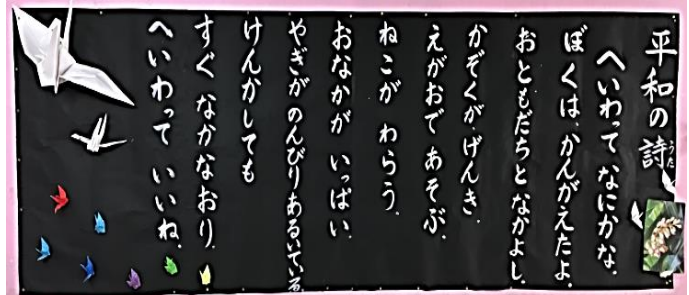 平和の詩
うた
へいわって なにかな。
ぼくは、かんがえたよ。
おともだちと なかよし。
かぞくが、げんき。
えがおで あそぶ。
ねこが わらう。
おなかが いっぱい。
やぎが のんびりあるいている。
けんかしても
すぐ なかなおり。
へいわって いいね。